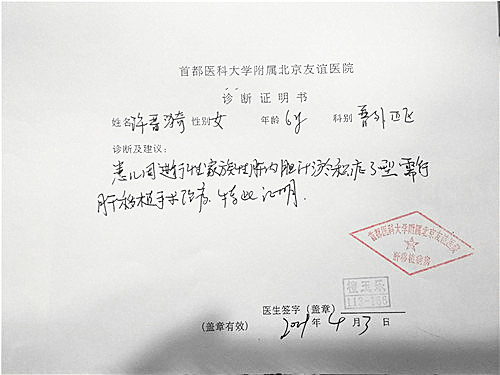 首都医科大学附属北京友谊医院
诊断证明书
姓名 许晋漪 性别 女 年龄 6y 科别 普外
诊断及建议:
患儿因进行性家族性肝内胆汁淤积症3型 需行
肝移植手术治疗. 特此证明.
首都医科大学附属北京友谊医院
肝移植病房
医生签字(盖章)
113-166
(盖章有效) 2021 年 4 月 3 日